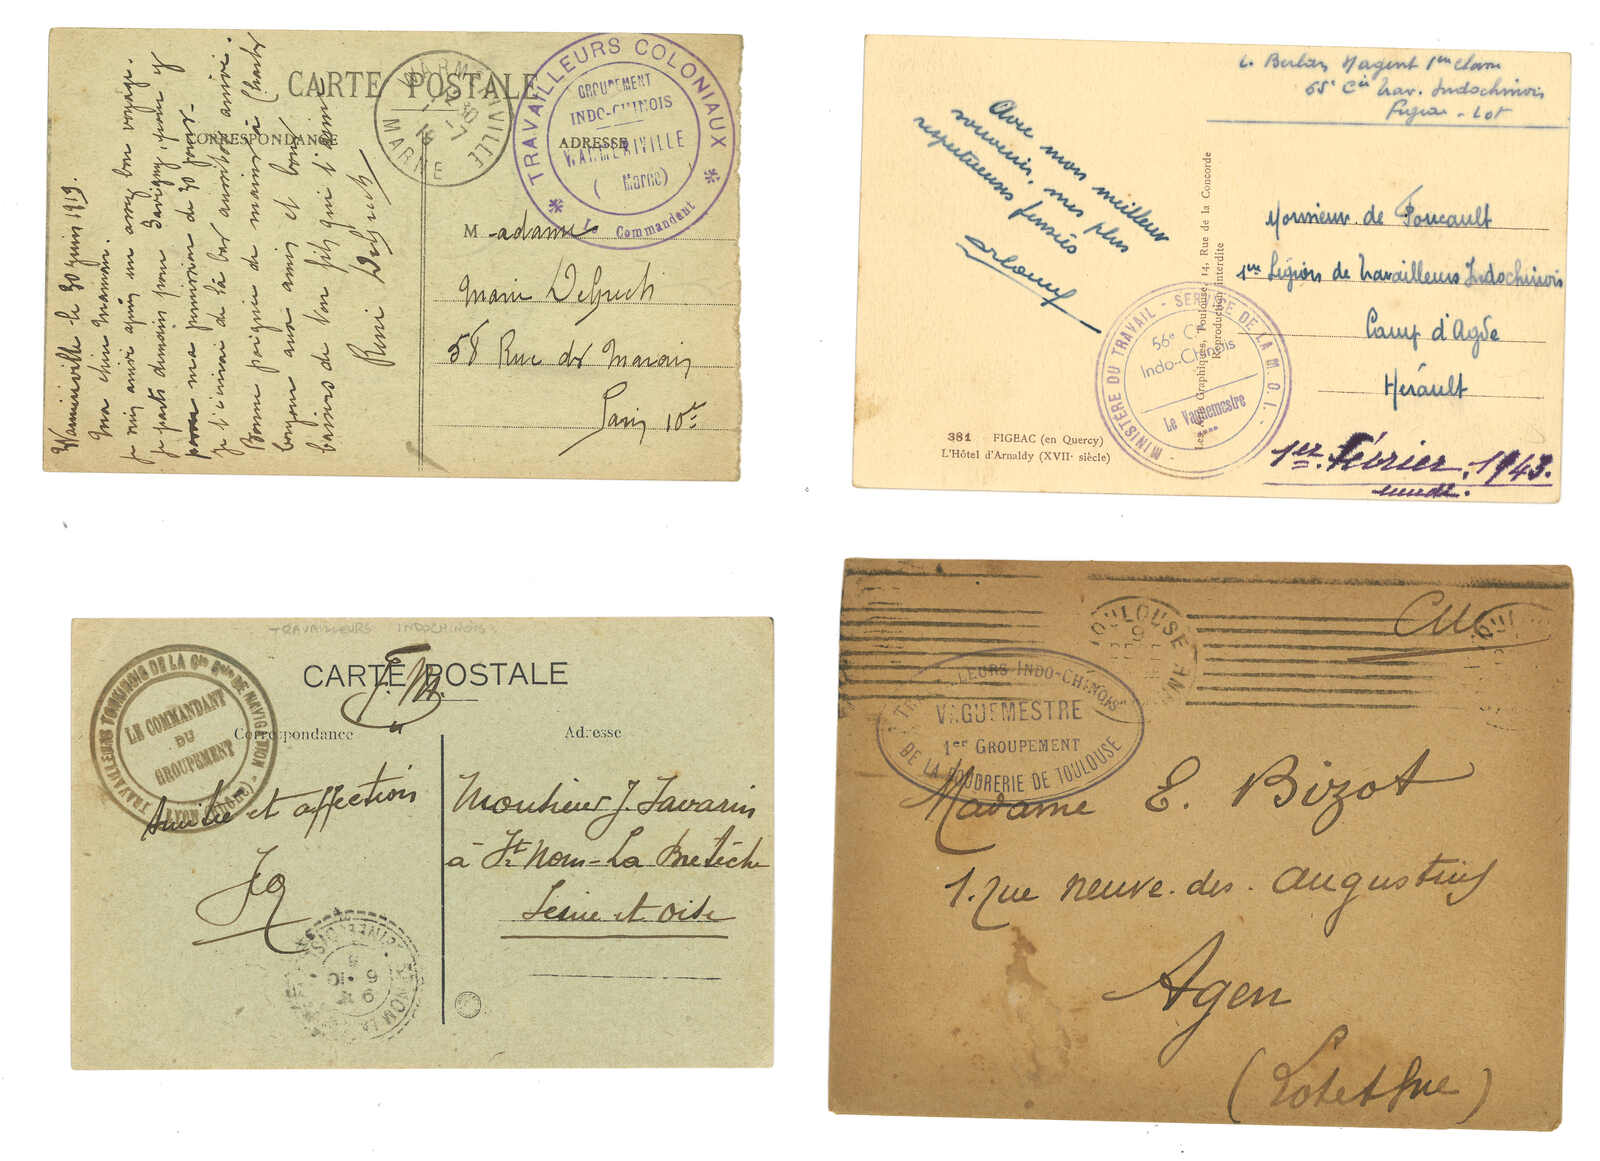 CARTE POSTALE
CORRESPONDANCE
ADRESSE
WARMERIVILLE
MARNE
TRAVAILLEURS COLONIAUX
GROUPEMENT
INDO-CHINOIS
WARMERIVILLE
(Marne)
Le Commandant
Warmeriville le 30 juin 1919.
Ma chère Maman.
je suis arrivé après un assez bon voyage.
je parts demain pour Savigny, pour y
ma permission de 30 jours.
je t'écrirai de là bas aussitôt arrivé.
Bonne poignée de mains à Charles
bonjour aux amis et bons
baisers de ton fils qui t'aime
René
M-adame
Marie
58 Rue des Marais
Paris 10e
56e Cie Trav. Indochinois
Figeac - Lot
Avec mon meilleur
souvenir, mes plus
respectueuses pensées
Monsieur de Foucault
1ère Légion de travailleurs Indochinois
Camp d'Agde
Hérault
MINISTÈRE DU TRAVAIL - SERVICE DE LA M.O.I. -
56e Cie
Indo-Chinois
Le Vaguemestre
Reproduction interdite
381 FIGEAC (en Quercy)
L'Hôtel d'Arnaldy (XVIIe siècle)
1er Février 1943.
TRAVAILLEURS INDOCHINOIS
CARTE POSTALE
F.M.
Correspondance
Adresse
TRAVAILLEURS TONKINOIS DE LA Cie Gale DE NAVIGATION
LYON (RHONE)
LE COMMANDANT
DU
GROUPEMENT
Amitié et affection
Monsieur J. Tavarin
à St Nom-La Bretèche
Seine et Oise
TOULOUSE
"TRAVAILLEURS INDO-CHINOIS"
VAGUEMESTRE
1er GROUPEMENT
DE LA POUDRERIE DE TOULOUSE
Madame E. Bizot
1. rue neuve. des. Augustins
Agen
(Lot et Gne)